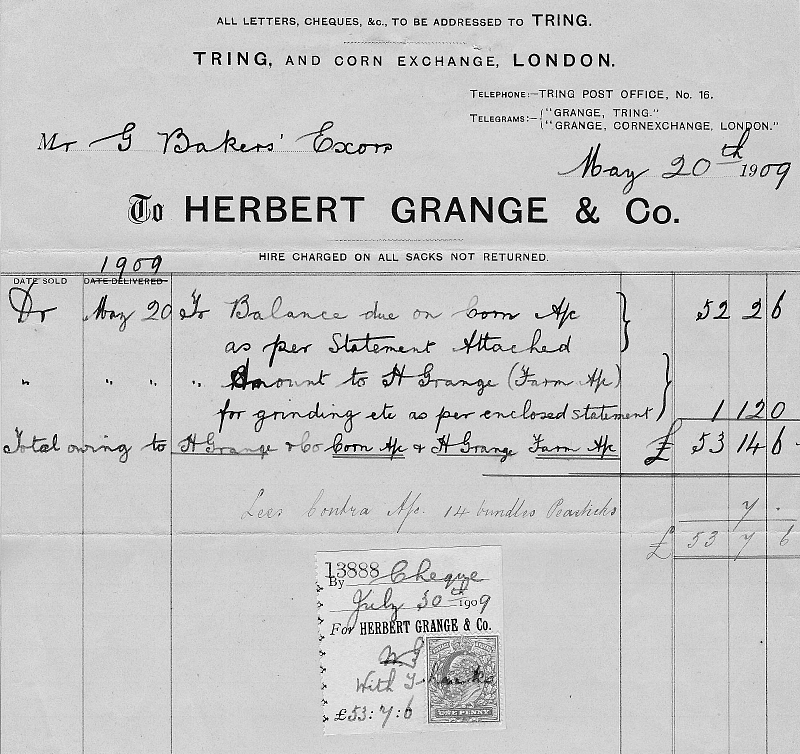 ALL LETTERS, CHEQUES, &c., TO BE ADDRESSED TO TRING.
TRING, AND CORN EXCHANGE, LONDON.
TELEPHONE:—TRING POST OFFICE, No. 16.
TELEGRAMS:— "GRANGE, TRING."
"GRANGE, CORNEXCHANGE, LONDON."
Mr G Bakers' Exors
May 20th 1909
To HERBERT GRANGE & Co.
HIRE CHARGED ON ALL SACKS NOT RETURNED.
1909
DATE SOLD DATE DELIVERED
Dr May 20 To Balance due on Corn A/c 52 2 6
as per Statement Attached
" " " " Amount to H Grange (Farm A/c)
for grinding etc as per enclosed statement 1 12 0
Total owing to H Grange & Co Corn A/c & H Grange Farm A/c £ 53 14 6
Less Contra A/c. 14 bundles Peasticks 7 .
£ 53 7 6
13888
By Cheque
July 30th 1909
For HERBERT GRANGE & Co.
With Thanks
£53:7:6
ONE PENNY